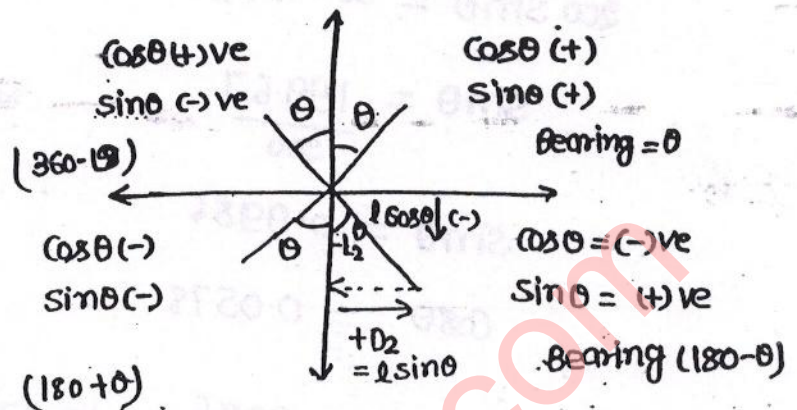 Cosθ (+)ve
Sinθ (-)ve
(360-θ)
θ
θ
Cosθ (+)
Sinθ (+)
Bearing = θ
Cosθ (-)
Sinθ (-)
(180+θ)
θ
θ
-L₂
lCosθ (-)
+D₂
= lsinθ
Cosθ = (-)ve
Sinθ = (+)ve
Bearing (180-θ)
.com